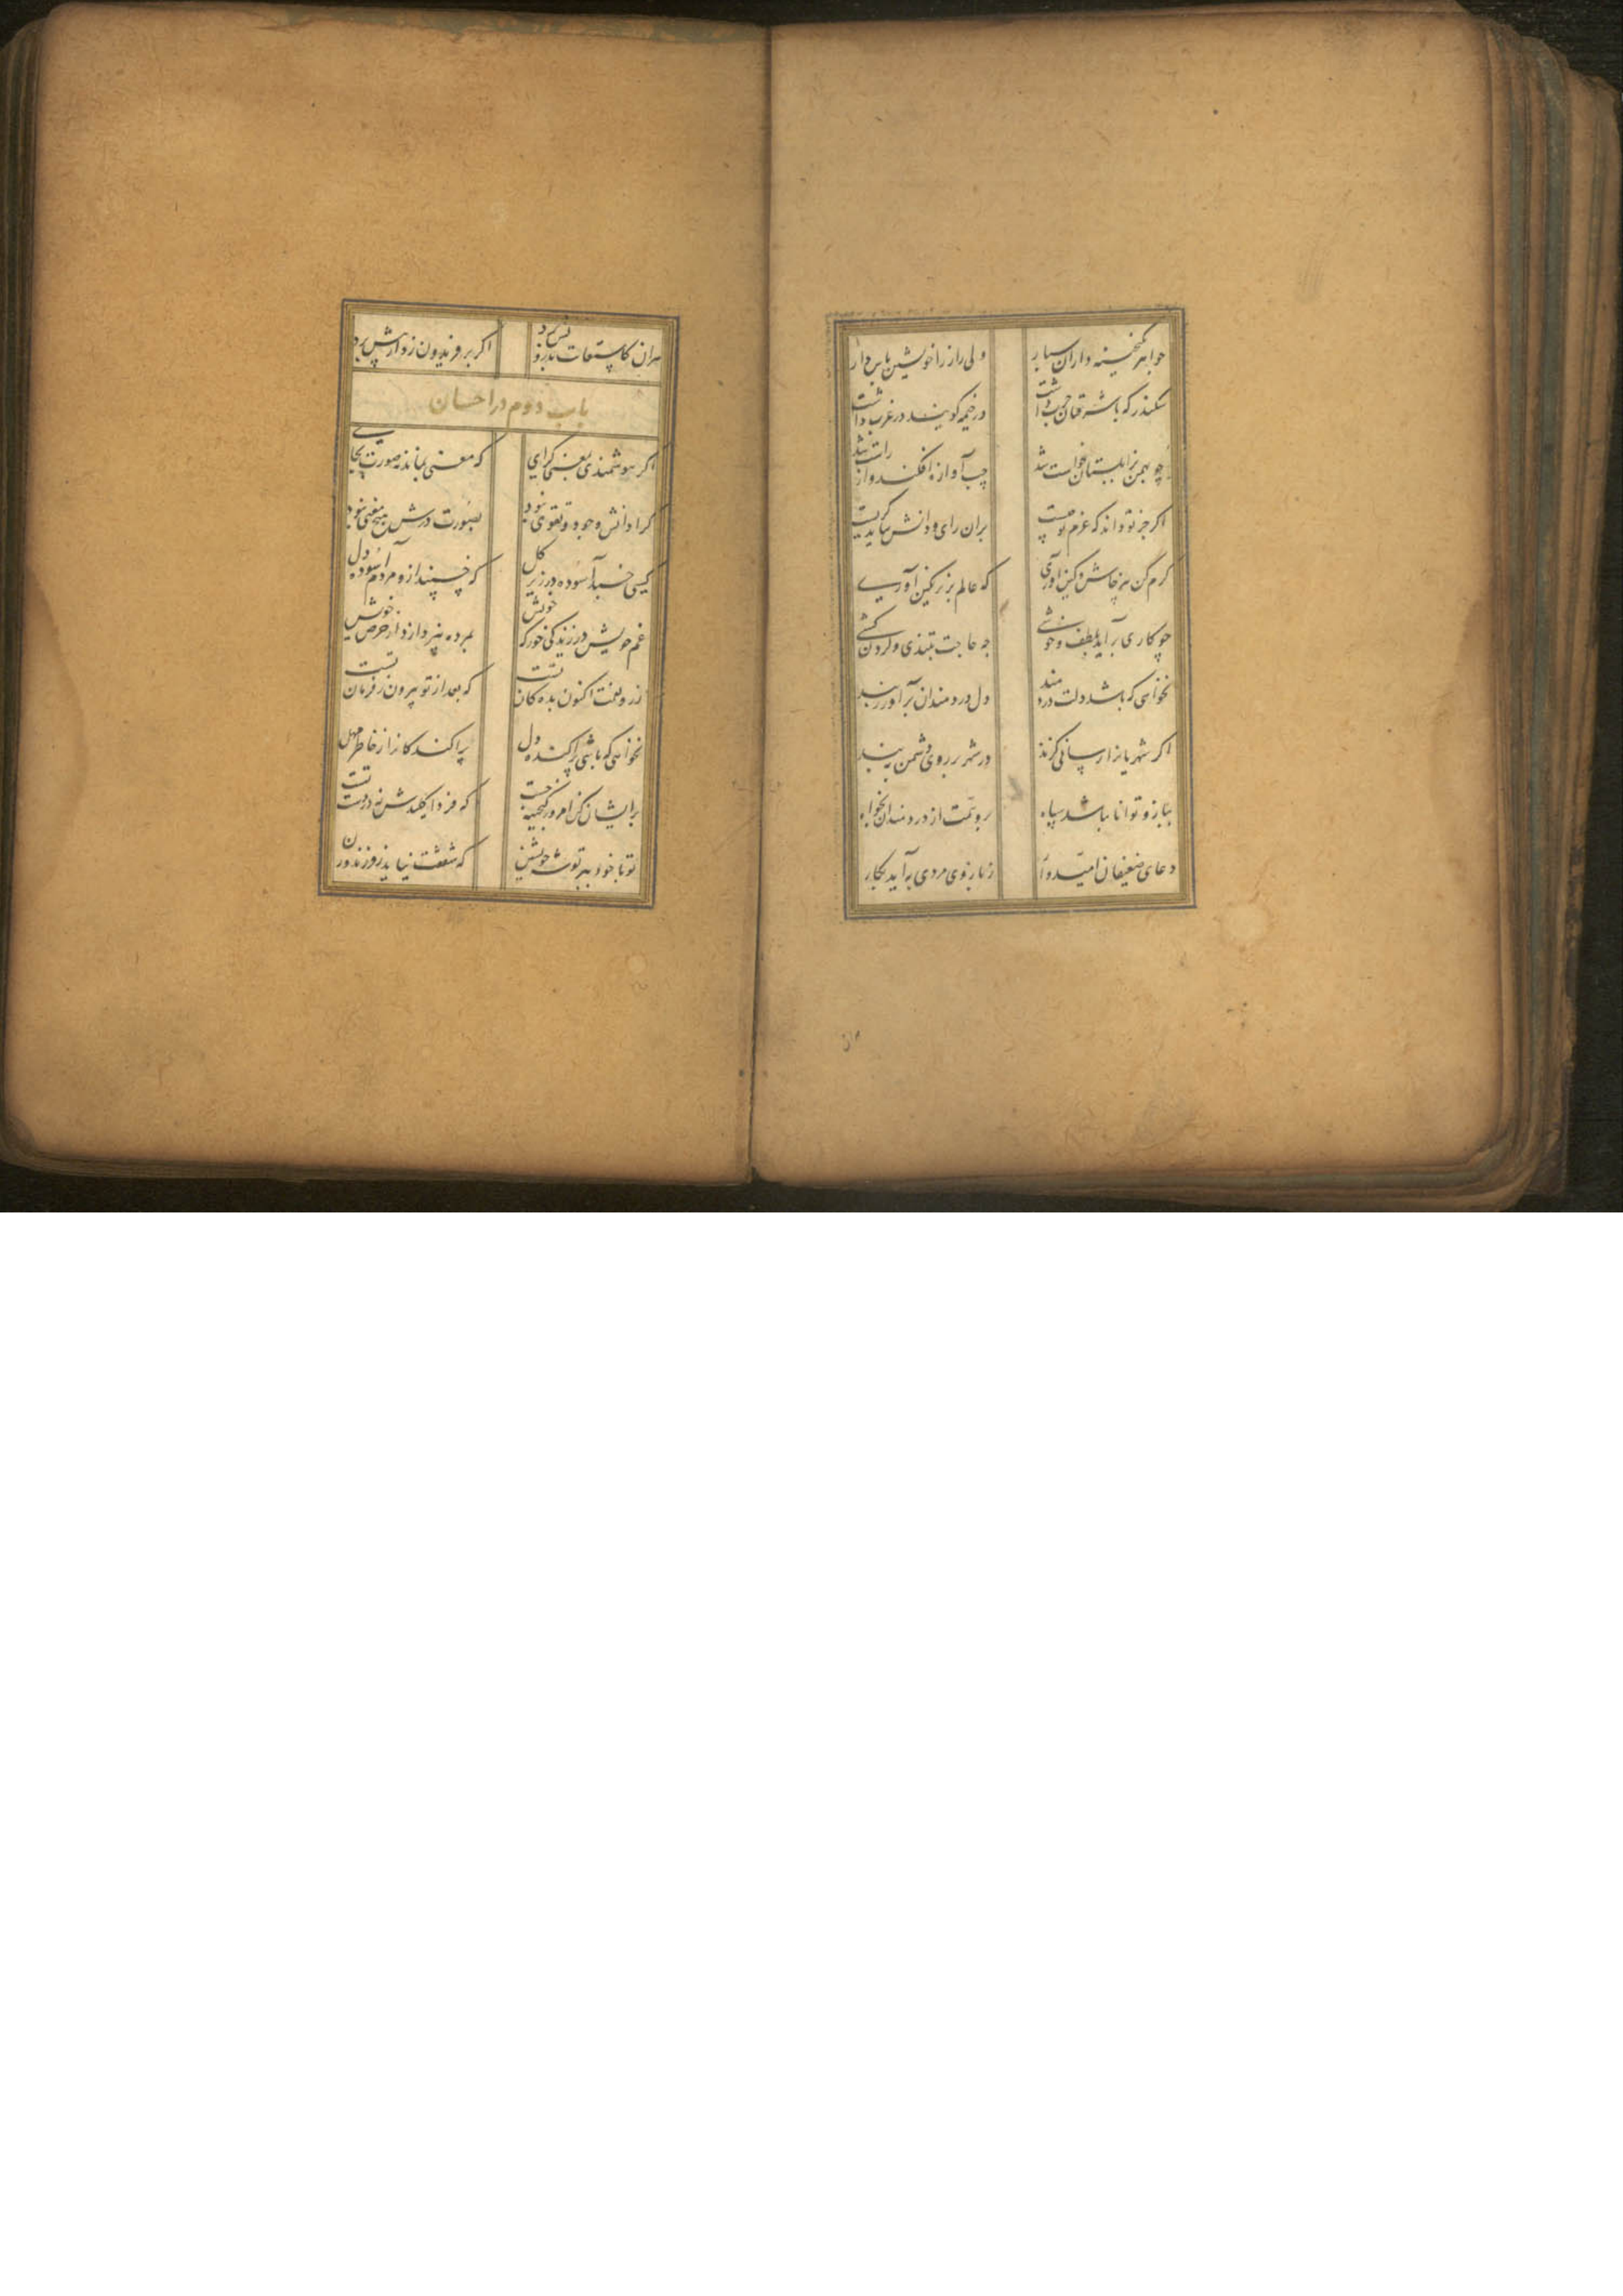 جواهر بگنجینه داران سپار ولی راز را خویشتن پاس دار
سکندر که با شرقیان حرب داشت در خیمه گویند در غرب داشت
چو بهمن بزابلستان خواست شد چپ آوازه افکند و از راست شد
اگر جز تو داند که عزم تو چیست بران رای و دانش بباید گریست
کرم کن نه پرخاش و کین آوری که عالم بزیر نگین آوری
چو کاری برآید بلطف و خوشی چه حاجت بتندی و گردن کشی
نخواهی که باشد دلت دردمند دل دردمندان برآور ز بند
اگر شهریار را رسانی گزند در شهر بر روی دشمن ببند
ببازو توانا نباشد سپاه رو همت از دردمندان بخواه
دعای ضعیفان امیدوار ز بازوی مردی به آید بکار
هران کاستعانت بدرویش برد اگر بر فریدون زد از پیش برد
باب دوم در احسان
اگر هوشمندی بمعنی گرای که معنی بماند نه صورت بجای
کرا دانش و جود و تقوی نبود بصورت درش هیچ معنی نبود
کسی خسبد آسوده در زیر گل که خسپند ازو مردم آسوده دل
غم خویش در زندگی خور که خویش بمرده نپردازد از حرص خویش
زر و نعمت اکنون بده کان تست که بعد از تو بیرون ز فرمان تست
نخواهی که باشی پراکنده دل پراکندگانرا ز خاطر مهل
پریشان کن امروز گنجینه چست که فردا کلیدش نه در دست تست
تو با خود ببر توشه خویشتن که شفقت نیاید ز فرزند و زن